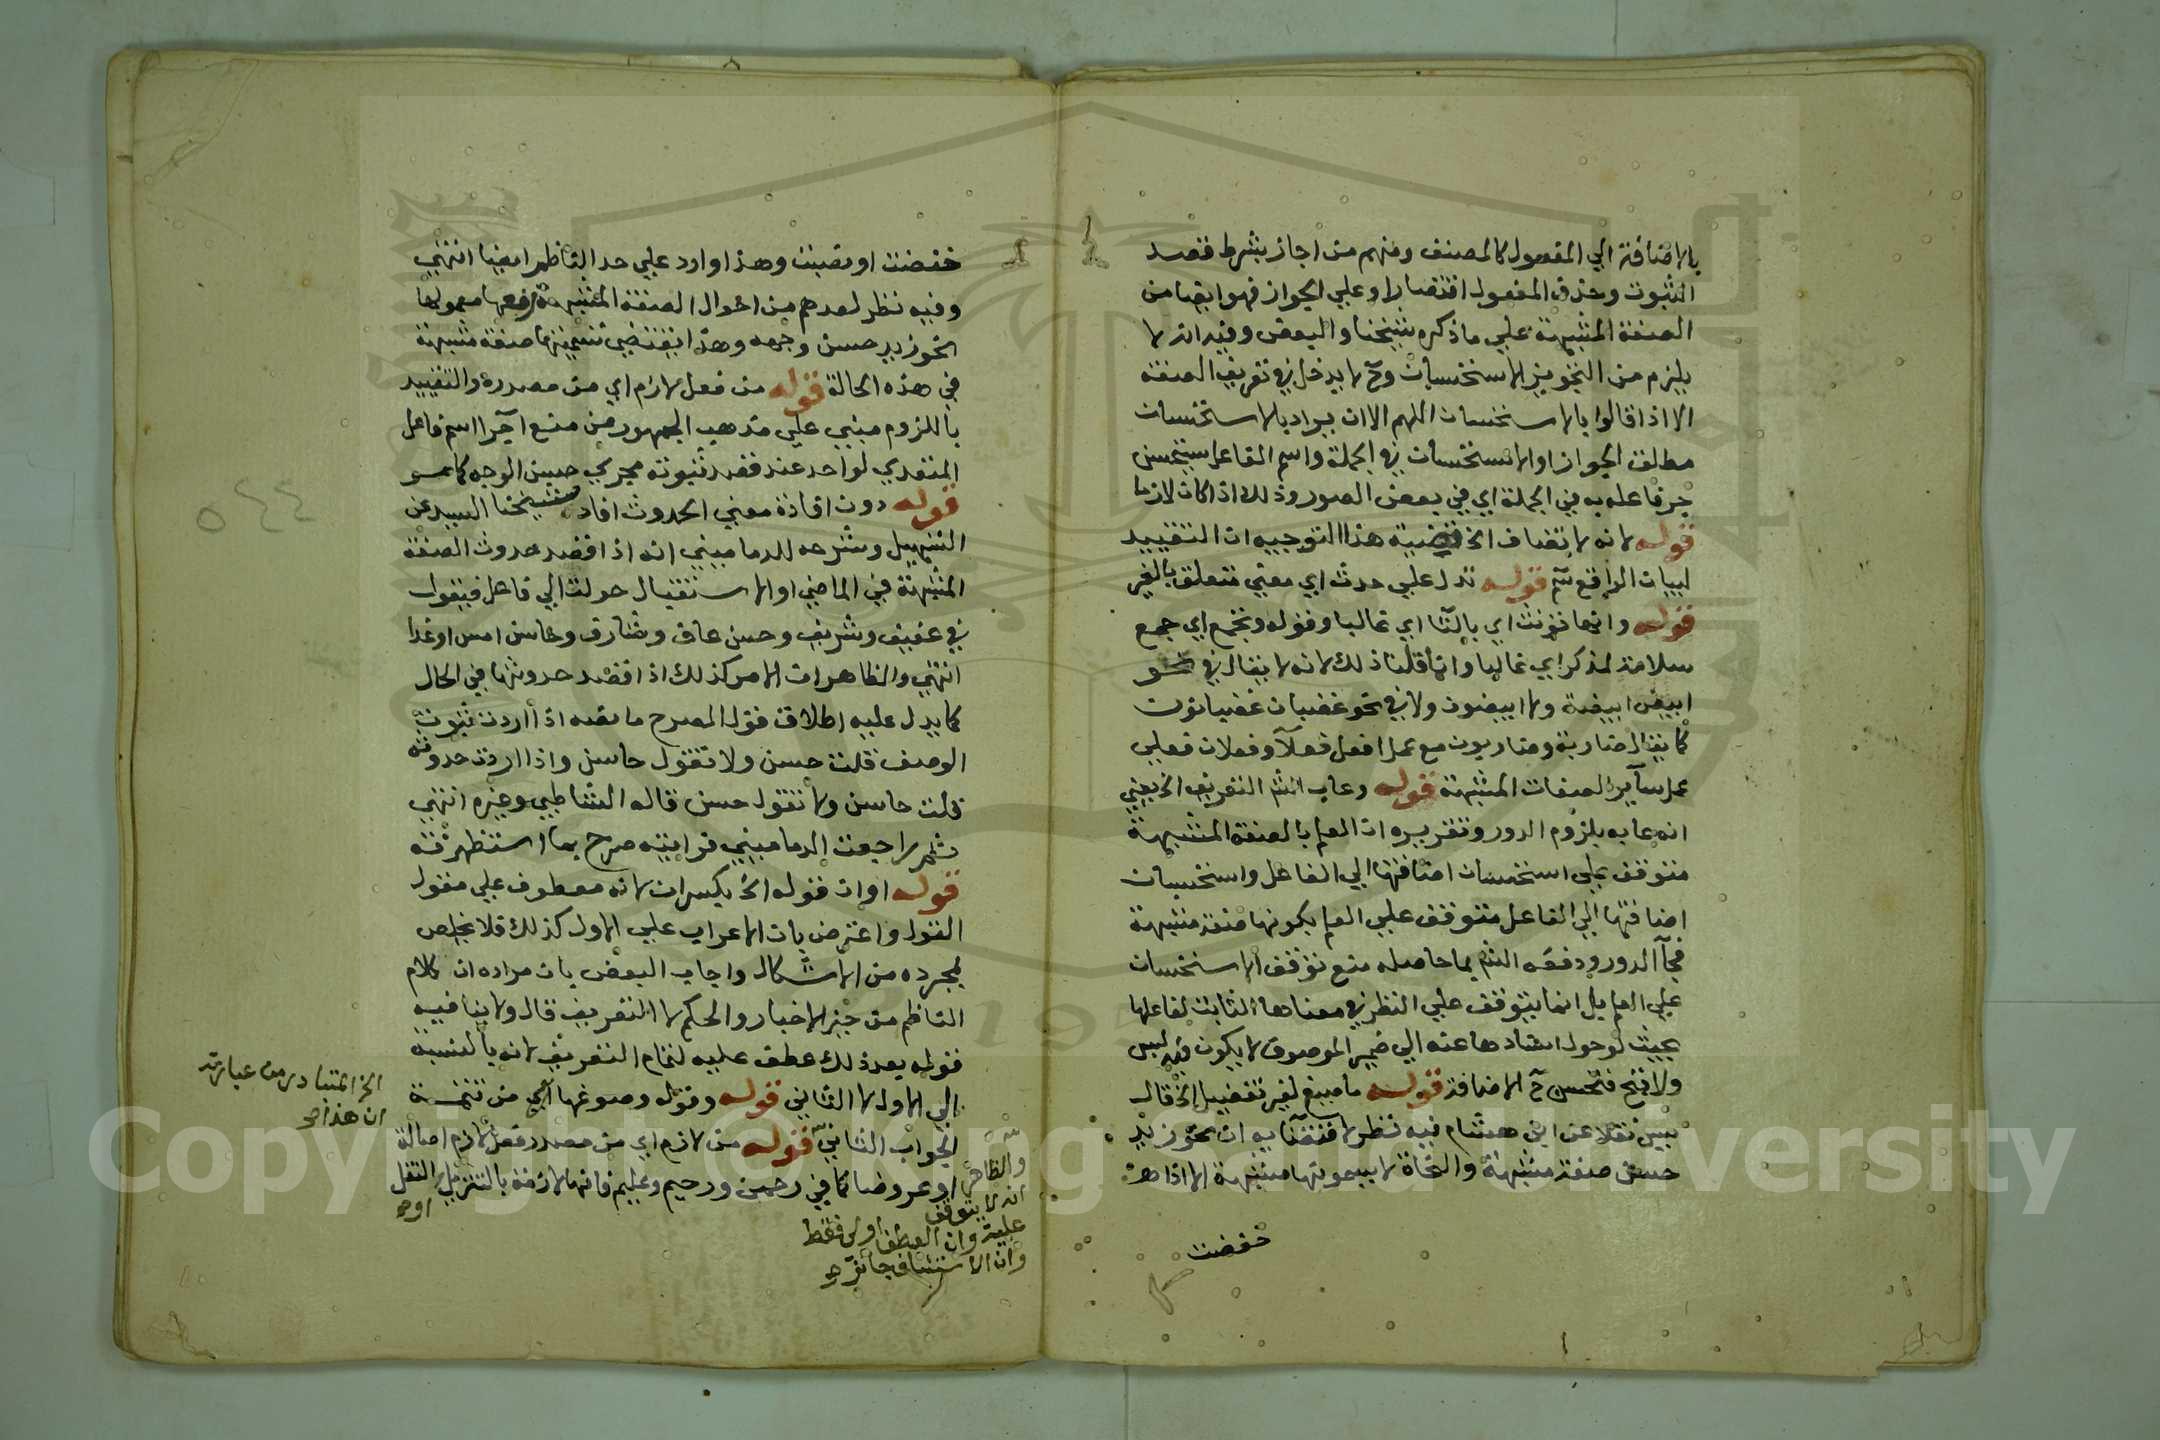 بالاضافة الي المفعول كالمصنف ومنهم من اجاز بشرط قصد
الثبوت وحذف المفعول اقتصارا وعلي الجواز فهو ايضا من
الصفة المشبهة علي ما ذكره شيخنا والبعض وفيه انه لا
يلزم من التجويز الاستحسان وح لا يدخل في تعريف الصفة
الا اذا قالوا بالاستحسان اللهم الا ان يراد بالاستحسان
مطلق الجواز او الاستحسان في الجملة واسم الفاعل يستحسن
جر فاعله به في الجملة اي في بعض الصور وذلك اذا كان لازما
قوله لانه لا تضاف الخ قضية هذا التوجيه ان التقييد
لبيان الواقع سم قوله تدل علي حدث اي معني متعلق بالغير
قوله وانها تؤنث اي بالتا اي غالبا وقوله وتجمع اي جمع
سلامة لمذكر اي غالبا وانما قلنا ذلك لانه لا يقال في نحو
ابيض ابيضة ولا ابيضون ولا في نحو غضبان غضبانون
كما يقال ضاربة وضاربون مع عمل افعل فعلا وفعلان فعلي
عمل سائر الصفات المشبهة قوله وعاب الش التعريف الخ يعني
انه عابه بلزوم الدور وتقريره ان العلم بالصفة المشبهة
متوقف علي استحسان اضافتها الي الفاعل واستحسان
اضافتها الي الفاعل متوقف علي العلم بكونها صفة مشبهة
فجآ الدور ودفعه الش بما حاصله منع توقف الاستحسان
علي العلم بل انما يتوقف علي النظر في معناها الثابت لفاعلها
بحيث لو حول اسنادها عنه الي ضمير الموصوف لا يكون فيه لبس
ولا قبح فتحسن ح الاضافة قوله ما صيغ لغير تفضيل الخ قال
يس نقلا عن ابن هشام فيه نظر لاقتضائه ان نحو زيد
حسن صفة مشبهة والنحاة لا يسمونها مشبهة الا اذا
خفضت
خفضت او نصبت وهذا وارد علي حد الناظم ايضا انتهي
وفيه نظر لعدهم من احوال الصفة المشبهة رفعها معمولها
نحو زيد حسن وجهه وهذا يقتضي تسميتها صفة مشبهة
في هذه الحالة قوله من فعل لازم اي من مصدره والتقييد
باللزوم مبني علي مذهب الجمهور من منع اجرا اسم فاعل
المتعدي لواحد عند قصد ثبوته مجري حسن الوجه كما مر
قوله دون افادة معني الحدوث افاد شيخنا السيد عن
التسهيل وشرحه للدماميني انه اذا قصد حدوث الصفة
المشبهة في الماضي او الاستقبال حولت الي فاعل فتقول
في عفيف وشريف وحسن عاف وشارف وحاسن امس او غدا
انتهي والظاهر ان الامر كذلك اذا قصد حدوثها في الحال
كما يدل عليه اطلاق قول المصرح ما نصه اذا اردت ثبوت
الوصف قلت حسن ولا تقول حاسن واذا اردت حدوثه
قلت حاسن ولا تقول حسن قاله الشاطبي وغيره انتهي
ثم راجعت الدماميني فرايته صرح بما استظهرته
قوله او ان قوله الخ بكسر ان لانه معطوف علي مقول
القول واعترض بان الاعراب علي الاول كذلك فلا يخلص
بمجرده من الاشكال واجاب البعض بان مراده ان كلام
الناظم من حيز الاخبار والحكم لا التعريف قال ولا ينافيه
قوله بعد ذلك عطف عليه لتمام التعريف لانه بالنسبة
الي الاول لا الثاني قوله وقوله وصوغها اي من تتمة
الجواب الثاني قوله من لازم اي من مصدر فعل لازم اصالة
او عروضا كما في رحمن ورحيم وعليم فانها لازمة بالتنزيل او النقل
الخ المتبادر من عبارته
ان هذا
والظاهر
انه لا يتوقف
عليه وان العطف اولي فقط
وان الاستئناف جائز